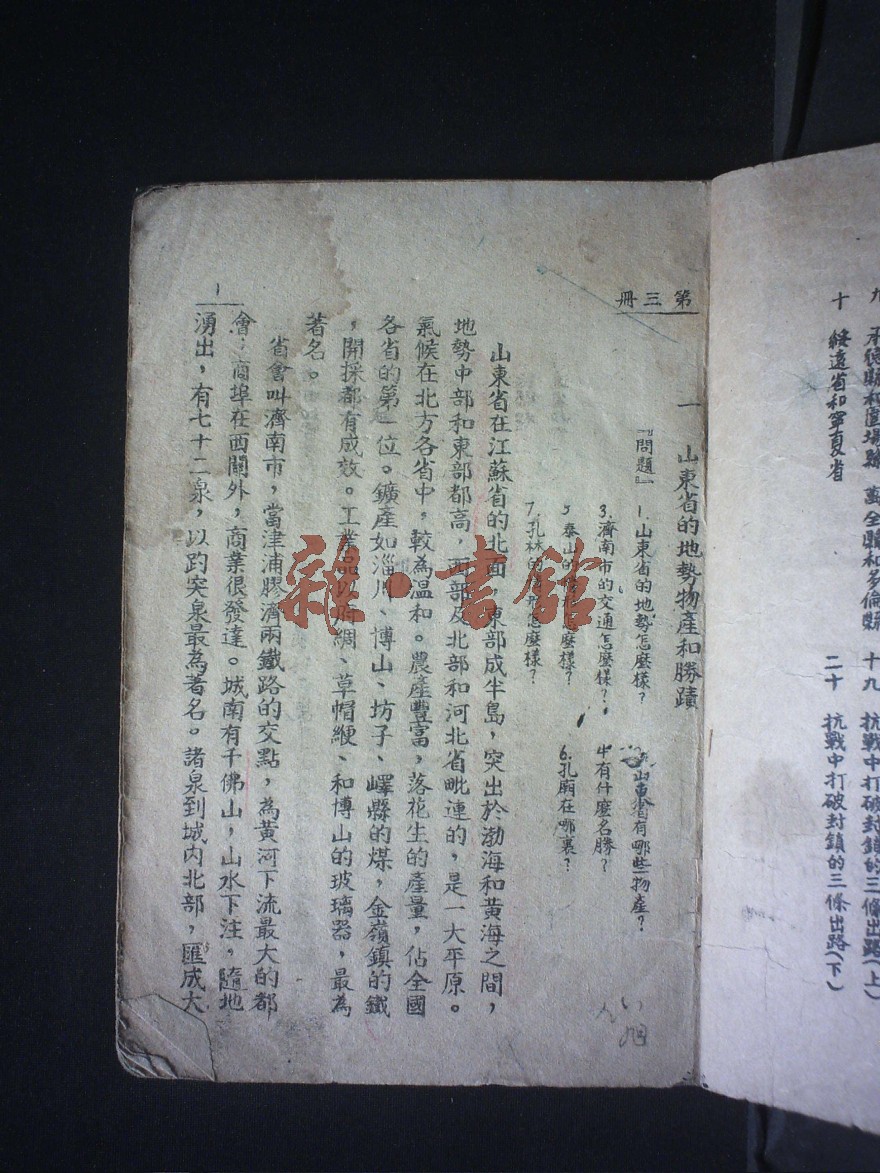 十 綏遠省和寧夏省
十九 抗戰中打破封鎖的三條出路(上)
二十 抗戰中打破封鎖的三條出路(下)
第三冊
一 山東省的地勢物產和勝蹟
『問題』 1.山東省的地勢怎麼樣？
山東省有哪些物產？
3.濟南市的交通怎麼樣？
中有什麼名勝？
5.泰山的 怎麼樣？
6.孔廟在哪裏？
7.孔林的情形怎麼樣？
山東省在江蘇省的北面，東部成半島，突出於渤海和黃海之間，
地勢中部和東部都高，西部及北部和河北省毗連的，是一大平原。
氣候在北方各省中，較為溫和。農產豐富，落花生的產量，佔全國
各省的第一位。鑛產如淄川、博山、坊子、嶧縣的煤，金嶺鎮的鐵
，開採都有成效。工業品以府綢、草帽緶、和博山的玻璃器，最為
著名。
省會叫濟南市，當津浦膠濟兩鐵路的交點，為黃河下流最大的都
會；商埠在西關外，商業很發達。城南有千佛山，山水下注，隨地
湧出，有七十二泉，以趵突泉最為著名。諸泉到城内北部，匯成大
1
雜·書館